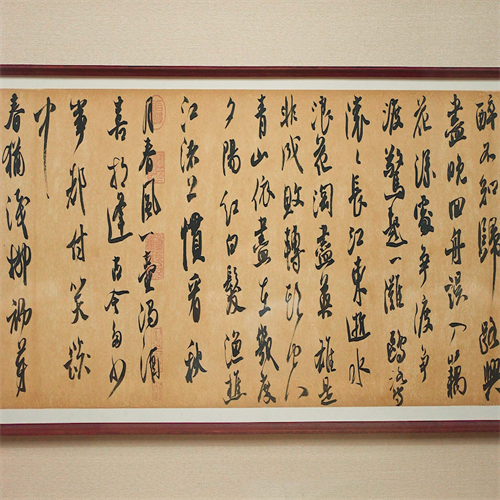 醉不知歸路興
盡晚回舟誤入藕
花深處爭渡爭
渡驚起一灘鷗鷺
滾々長江東逝水
浪花淘盡英雄是
非成敗轉頭空
青山依舊在幾度
夕陽紅白髮漁樵
江渚上慣看秋
月春風一壺濁酒
喜相逢古今多少
事都付笑談
中
春猶淺柳初芽